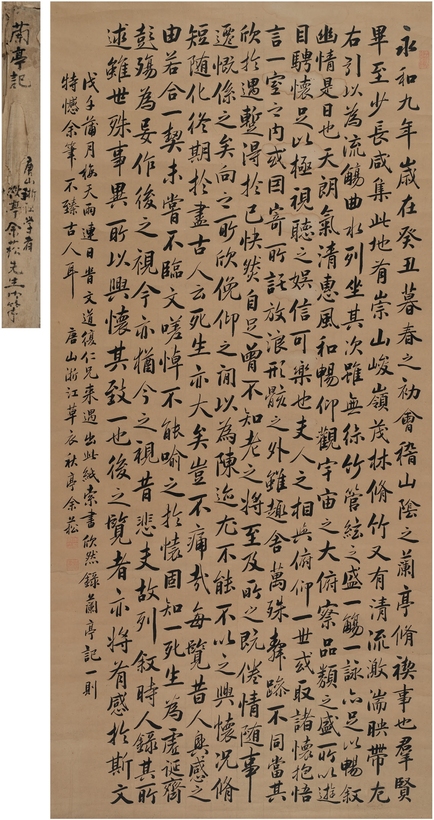 永和九年歲在癸丑暮春之初會稽山陰之蘭亭脩禊事也羣賢
畢至少長咸集此地有崇山峻嶺茂林脩竹又有清流激湍映帶左
右引以為流觴曲水列坐其次雖無絲竹管絃之盛一觴一詠亦足以暢叙
幽情是日也天朗氣清惠風和暢仰觀宇宙之大俯察品類之盛所以遊
目騁懷足以極視聽之娛信可樂也夫人之相與俯仰一世或取諸懷抱悟
言一室之内或因寄所託放浪形骸之外雖趣舍萬殊靜躁不同當其
欣於遇蹔得於己快然自足曾不知老之將至及所之既倦情随事
遷慨係之矣向之所欣俛仰之间以為陳迹尤不能不以之興懷况脩
短随化终期於盡古人云死生亦大矣豈不痛哉每覽昔人興感之
由若合一契未嘗不臨文嗟悼不能喻之於懷固知一死生為虚誕齊
彭殤為妄作後之視今亦猶今之視昔悲夫故列叙時人錄其所
述雖世殊事異所以興懷其致一也後之覽者亦將有感於斯文
戊子蒲月梅天雨連日昔文道復仁兄来遇出此紙索書欣然錄蘭亭記一則
特愧余筆不臻古人耳 唐山浙江草衣秋亭余崧
蘭亭記
唐山浙江
秋亭余崧先生